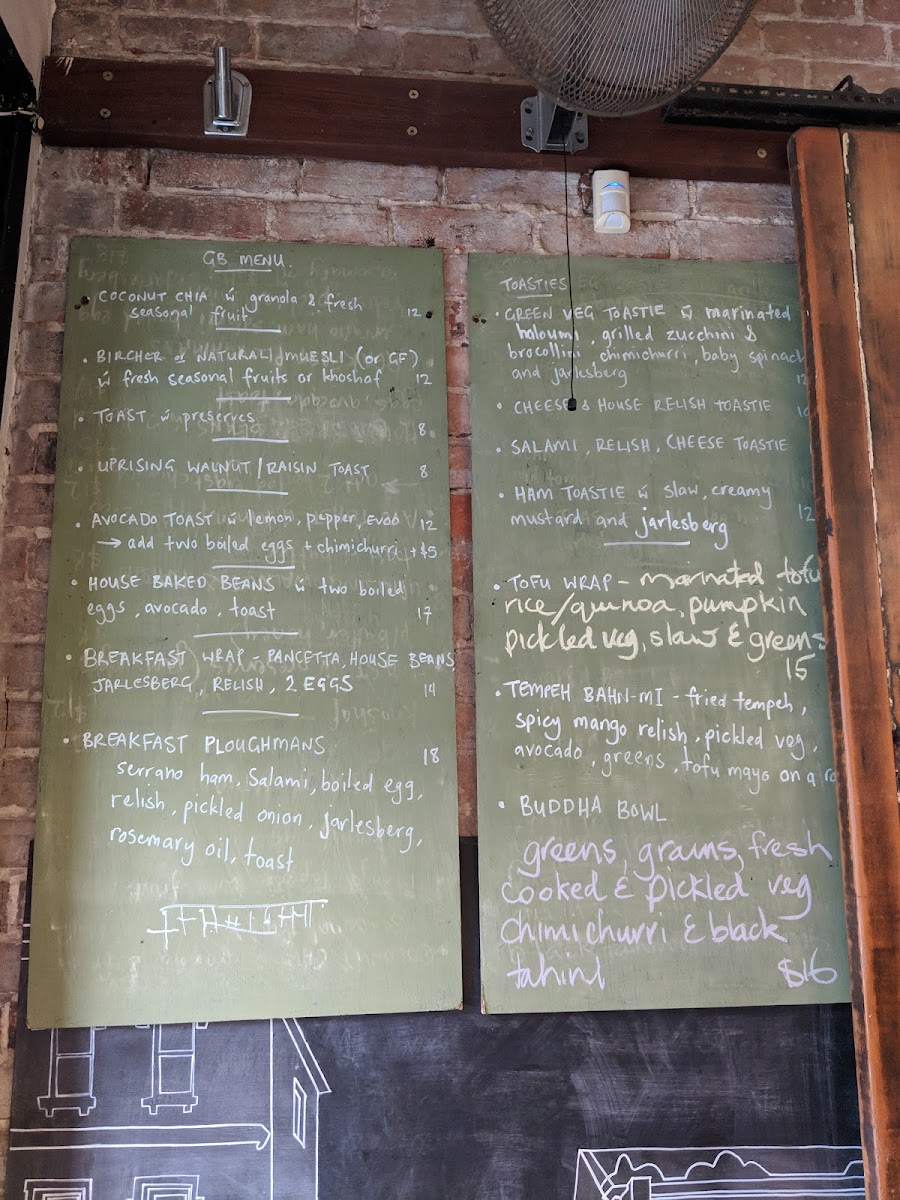 GB MENU
• COCONUT CHIA w̄ granola & fresh
seasonal fruit 12
• BIRCHER or NATURAL MUESLI (or GF)
w̄ fresh seasonal fruits or khoshaf 12
• TOAST w̄ preserves 8
• UPRISING WALNUT / RAISIN TOAST 8
• AVOCADO TOAST w̄ lemon, pepper, EVOO 12
→ add two boiled eggs + chimichurri + $5
• HOUSE BAKED BEANS w̄ two boiled
eggs, avocado, toast 17
• BREAKFAST WRAP - PANCETTA, HOUSE BEANS
JARLSBERG, RELISH, 2 EGGS 14
• BREAKFAST PLOUGHMANS 18
serrano ham, salami, boiled egg,
relish, pickled onion, jarlesberg,
rosemary oil, toast
TOASTIES
• GREEN VEG TOASTIE w̄ marinated
haloumi, grilled zucchini &
brocollini, chimichurri, baby spinach
and jarlesberg 12
• CHEESE & HOUSE RELISH TOASTIE
• SALAMI, RELISH, CHEESE TOASTIE
• HAM TOASTIE w̄ slaw, creamy
mustard and jarlesberg 12
• TOFU WRAP - marinated tofu
rice/quinoa, pumpkin
pickled veg, slaw & greens
15
• TEMPEH BAHN-MI - fried tempeh,
spicy mango relish, pickled veg,
avocado, greens, tofu mayo on a
• BUDDHA BOWL
greens, grains, fresh
cooked & pickled veg
chimichurri & black
tahini $16